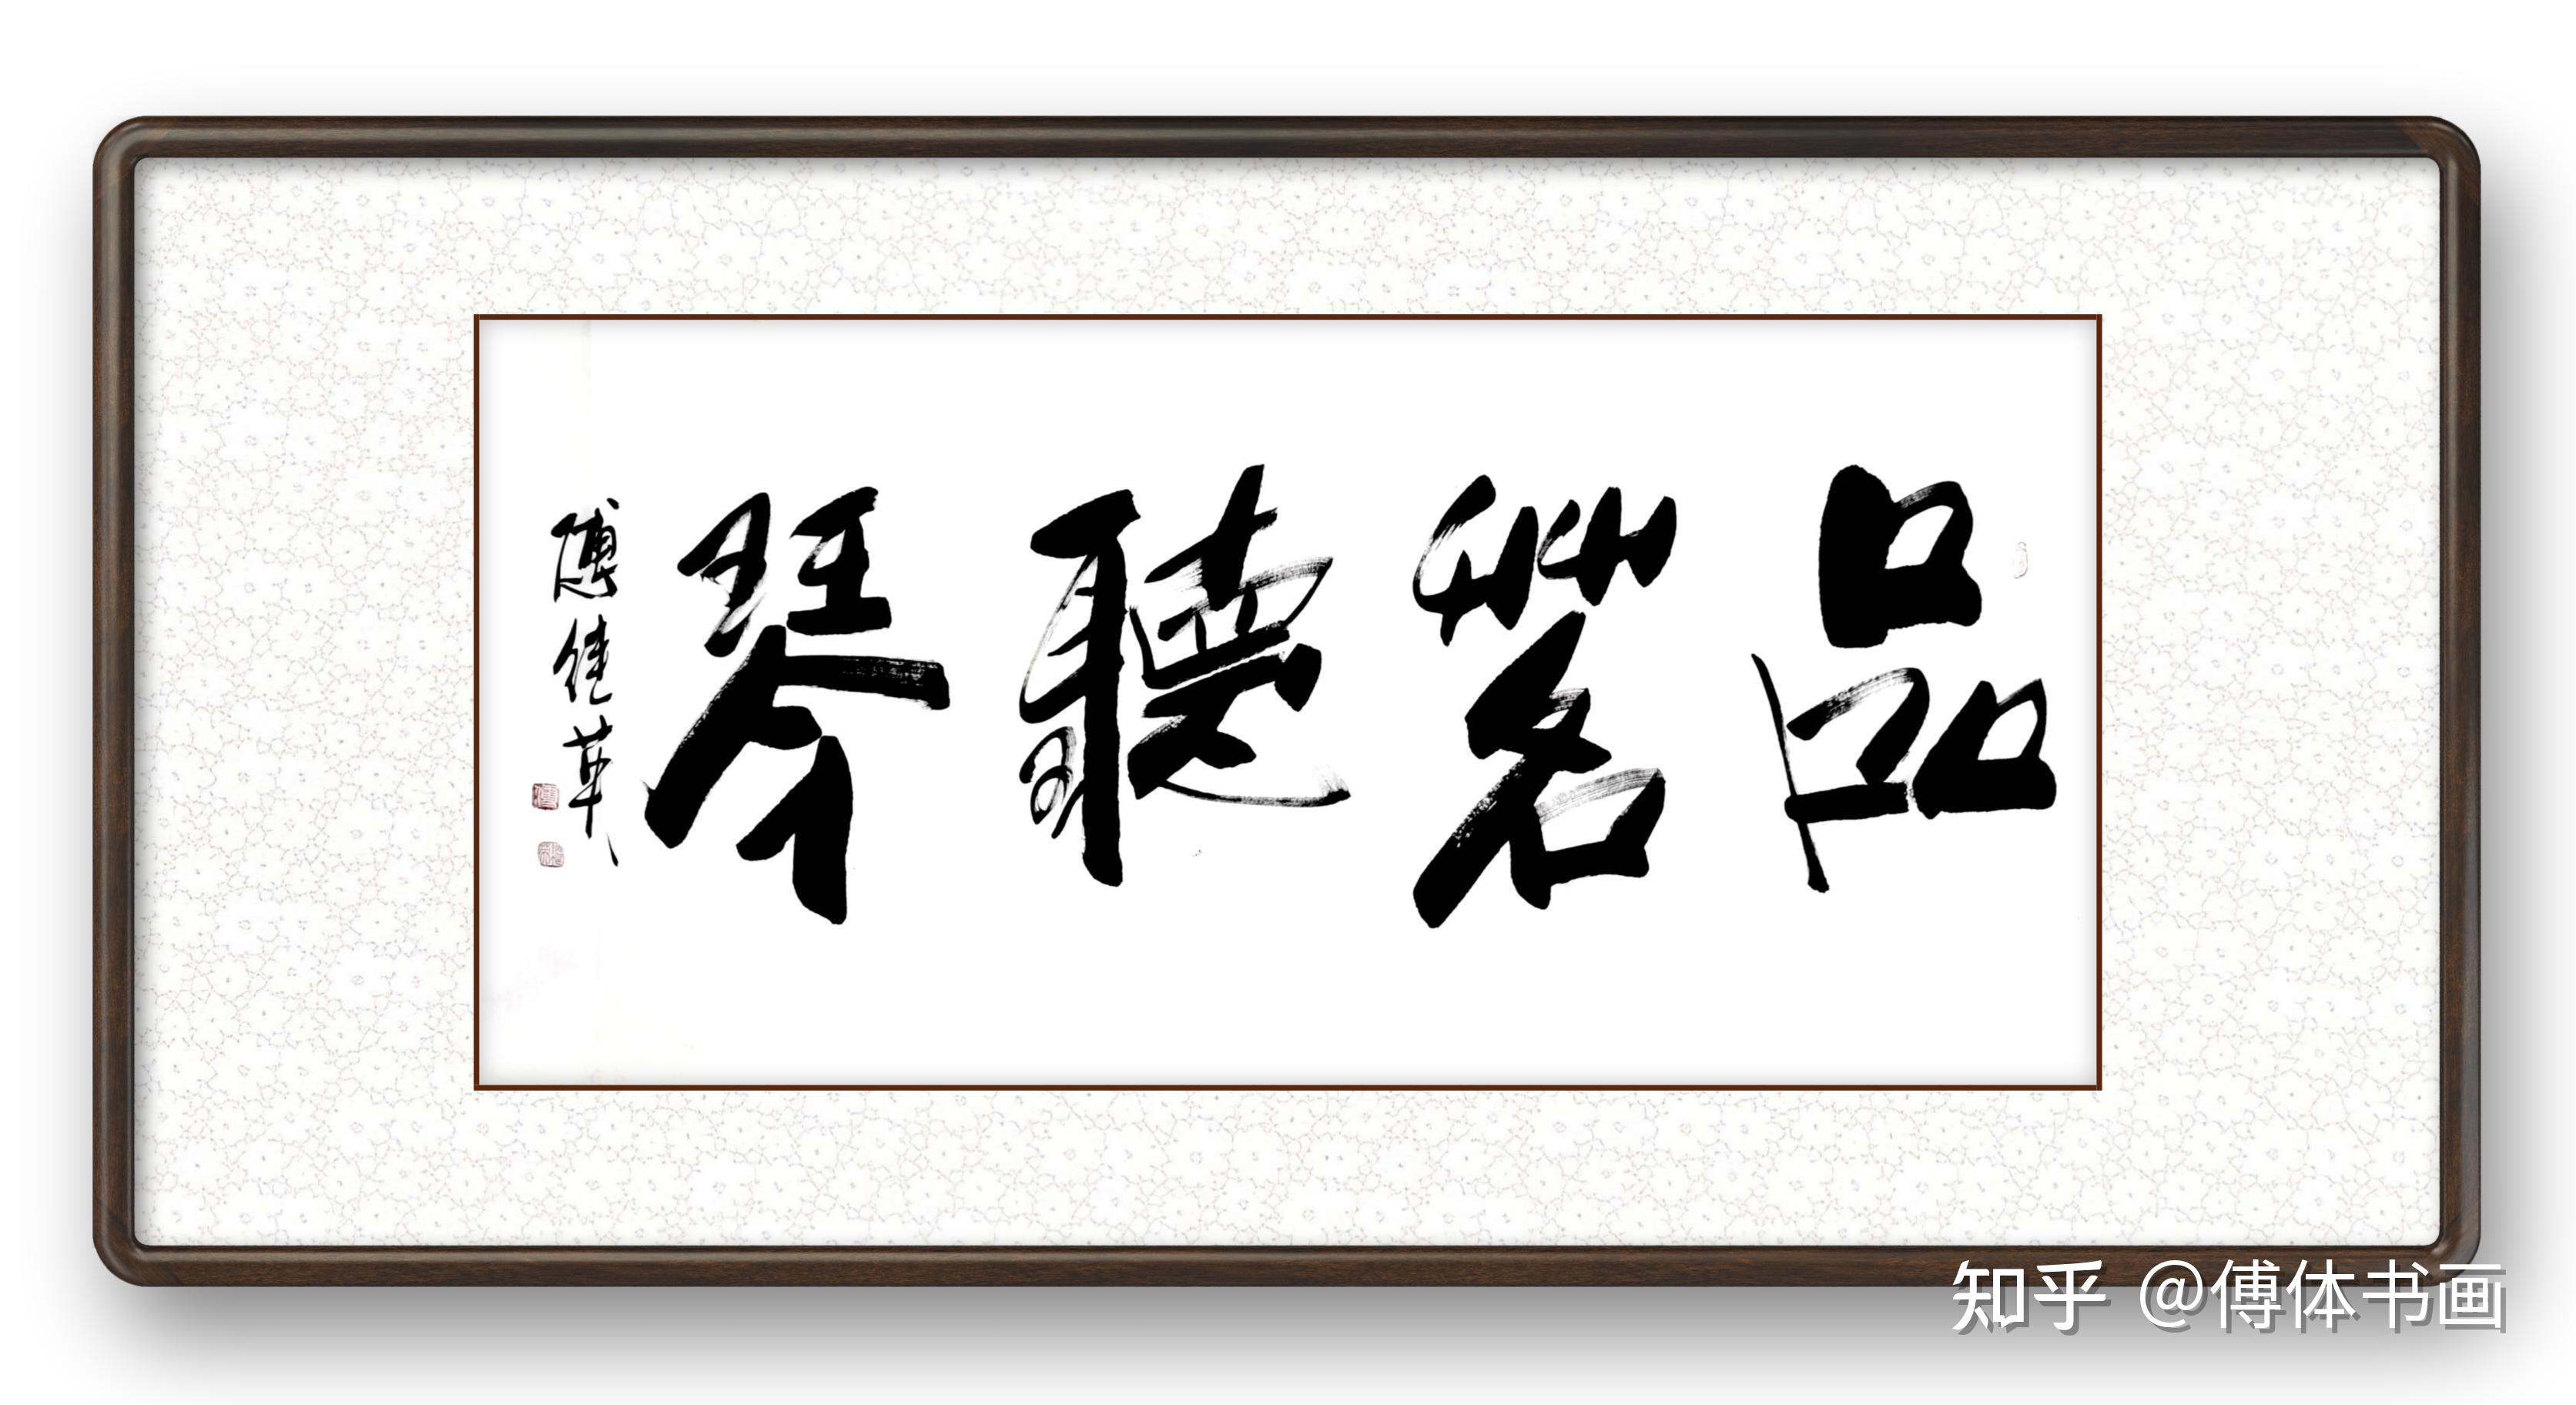 品茗聽琴
傅佳革
知乎 @傅体书画